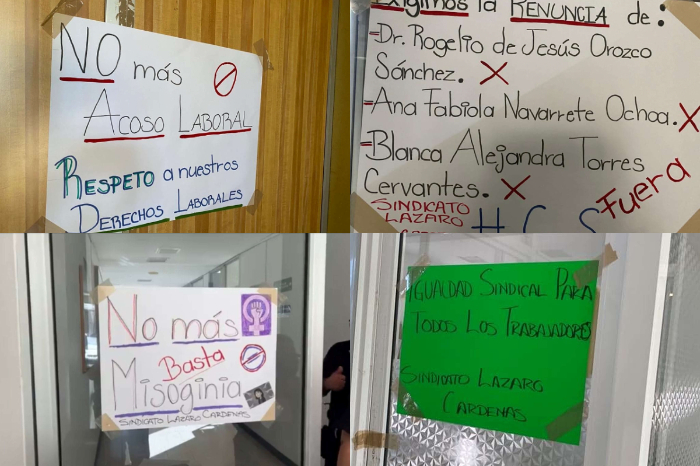 NO más
ACOSO LABORAL
RESPETO a nuestros
DERECHOS LABORALES
Exigimos la RENUNCIA de:
-Dr. Rogelio de Jesús Orozco
Sánchez. X
-Ana Fabiola Navarrete Ochoa. X
-Blanca Alejandra Torres
Cervantes. X
Fuera
SINDICATO
LAZARO
H C S
No más
Basta
Misoginia
SINDICATO LAZARO CARDENAS
IGUALDAD SINDICAL PARA
TODOS LOS TRABAJADORES
SINDICATO LAZARO
CARDENAS